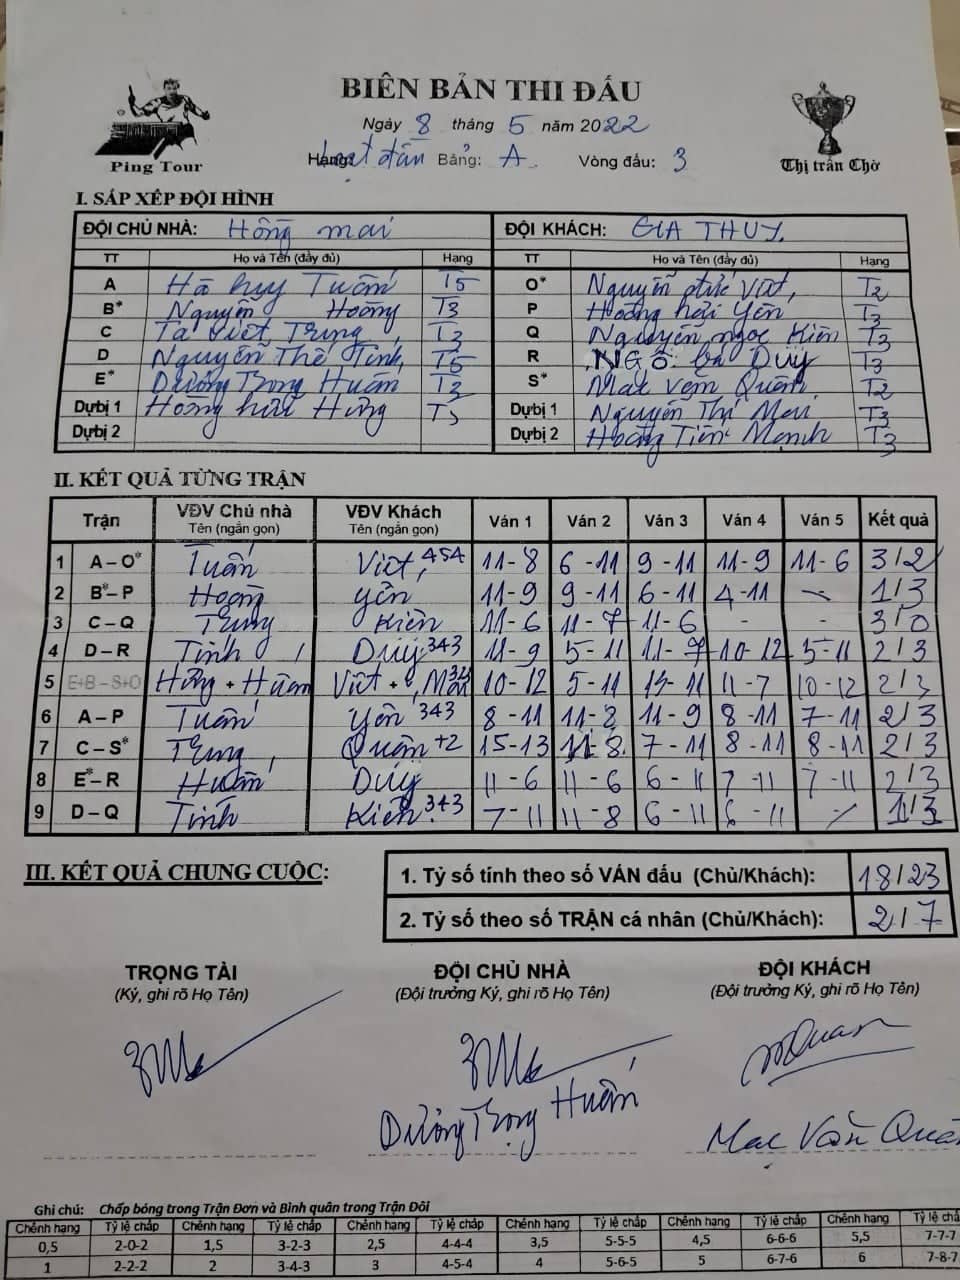 BIÊN BẢN THI ĐẤU
Ngày 8 tháng 5 năm 2022
Hạng: Bảng: A Vòng đấu: 3
Ping Tour
Thị trấn Chờ
I. SẮP XẾP ĐỘI HÌNH
ĐỘI CHỦ NHÀ: Hồng mai ĐỘI KHÁCH: GIA THUY.
TT Họ và Tên (đầy đủ) Hạng TT Họ và Tên (đầy đủ) Hạng
A Hà huy Tuấn T5 O* Nguyễn đức Việt, T2
B* Nguyễn Hoàng T3 P Hoàng hải Yên T3
C Tạ Viết Trung, T3 Q Nguyễn ngọc Kiên T3
D Nguyễn Thế Tình, T5 R NGÔ Duy T3
E* Dương Trọng Huấn T2 S* Mạc Văn Quân T2
Dựbị 1 Hoàng hữu Hưng T3 Dựbị 1 Nguyễn Thị Mai T3
Dựbị 2 Dựbị 2 Hoàng Tiến Mạnh T3
II. KẾT QUẢ TỪNG TRẬN
Trận VĐV Chủ nhà Tên (ngắn gọn) VĐV Khách Tên (ngắn gọn) Ván 1 Ván 2 Ván 3 Ván 4 Ván 5 Kết quả
1 A – O* Tuấn Việt, 454 11-8 6-11 9-11 11-9 11-6 3/2
2 B* – P Hoàng Yên 11-9 9-11 6-11 4-11 - 1/3
3 C – Q Trung Kiên 11-6 11-7 11-6 - - 3/0
4 D – R Tình, Duy 343 11-9 5-11 11-7 10-12 5-11 2/3
5 E+B – S+O Hưng + Huấn Việt + Mai 10-12 5-11 13-11 11-7 10-12 2/3
6 A – P Tuấn Yên 343 8-11 11-8 11-9 8-11 7-11 2/3
7 C – S* Trung, Quân +2 15-13 11-8. 7-11 8-11 8-11 2/3
8 E* – R Huấn Duy 11-6 11-6 6-11 7-11 7-11 2/3
9 D – Q Tình Kiên. 343 7-11 11-8 6-11 6-11 / 1/3
III. KẾT QUẢ CHUNG CUỘC:
1. Tỷ số tính theo số VÁN đấu (Chủ/Khách): 18/23
2. Tỷ số theo số TRẬN cá nhân (Chủ/Khách): 2/7
TRỌNG TÀI ĐỘI CHỦ NHÀ ĐỘI KHÁCH
(Ký, ghi rõ Họ Tên) (Đội trưởng Ký, ghi rõ Họ Tên) (Đội trưởng Ký, ghi rõ Họ Tên)
Quan
Dương Trọng Huấn
Mạc Văn Quân
Ghi chú: Chấp bóng trong Trận Đơn và Bình quân trong Trận Đôi
Chênh hạng Tỷ lệ chấp Chênh hạng Tỷ lệ chấp Chênh hạng Tỷ lệ chấp Chênh hạng Tỷ lệ chấp Chênh hạng Tỷ lệ chấp Chênh hạng Tỷ lệ
0,5 2-0-2 1,5 3-2-3 2,5 4-4-4 3,5 5-5-5 4,5 6-6-6 5,5 7-7-7
1 2-2-2 2 3-4-3 3 4-5-4 4 5-6-5 5 6-7-6 6 7-8-7